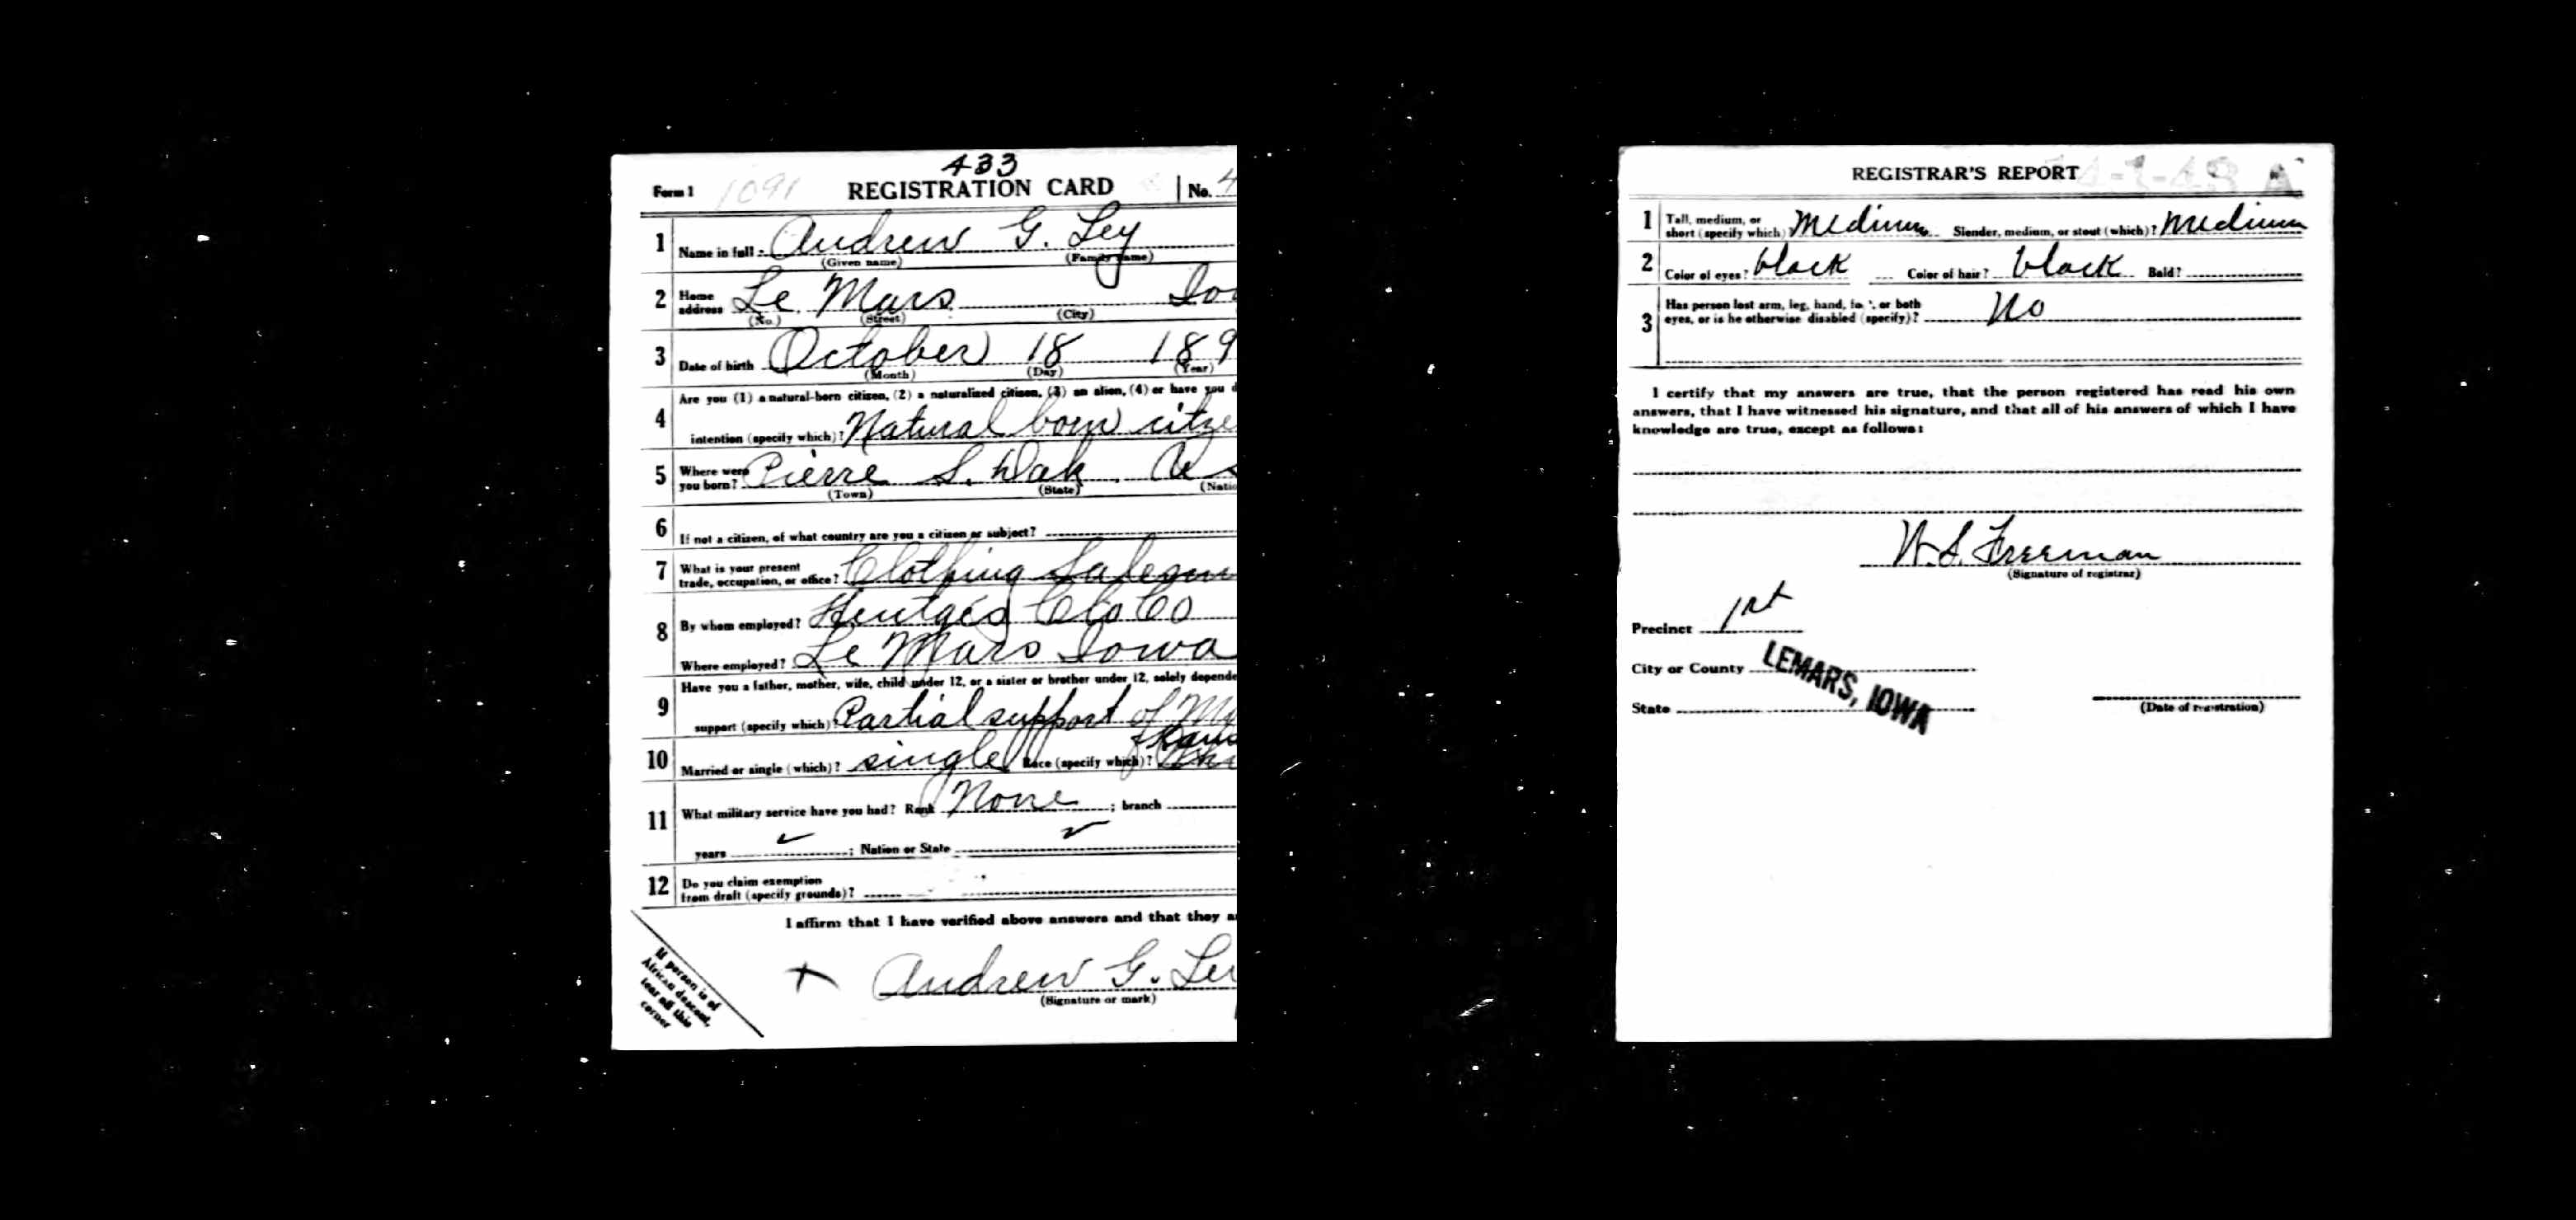 433
Form 1 1091 REGISTRATION CARD No. 4
1 Name in full Andrew G. Ley
(Given name) (Family name)
2 Home address Le Mars
(No.) (Street) (City)
3 Date of birth October 18 189
(Month) (Day) (Year)
Are you (1) a natural-born citizen, (2) a naturalized citizen, (3) an alien, (4) or have you
4 intention (specify which)? Natural born
5 Where were you born? Pierre S. Dak.
(Town) (State)
6 If not a citizen, of what country are you a citizen or subject?
7 What is your present trade, occupation, or office? Clothing
8 By whom employed? Hentges Clo Co
Where employed? Le Mars Iowa
Have you a father, mother, wife, child under 12, or a sister or brother under 12, solely
9 support (specify which)? Partial support of My
10 Married or single (which)? single Race (specify which)?
11 What military service have you had? Rank None ; branch
years ; Nation or State
12 Do you claim exemption
from draft (specify grounds)?
I affirm that I have verified above answers and that they
Andrew G.
(Signature or mark)
If person is of
African descent,
tear off this
corner
REGISTRAR'S REPORT
1 Tall, medium, or
short (specify which) Medium Slender, medium, or stout (which)? Medium
2 Color of eyes? black Color of hair? black Bald?
3 Has person lost arm, leg, hand, or both
eyes, or is he otherwise disabled (specify)? No
I certify that my answers are true, that the person registered has read his own
answers, that I have witnessed his signature, and that all of his answers of which I have
knowledge are true, except as follows:
W. S. Freeman
(Signature of registrar)
Precinct 1st
City or County LEMARS, IOWA
State
(Date of registration)